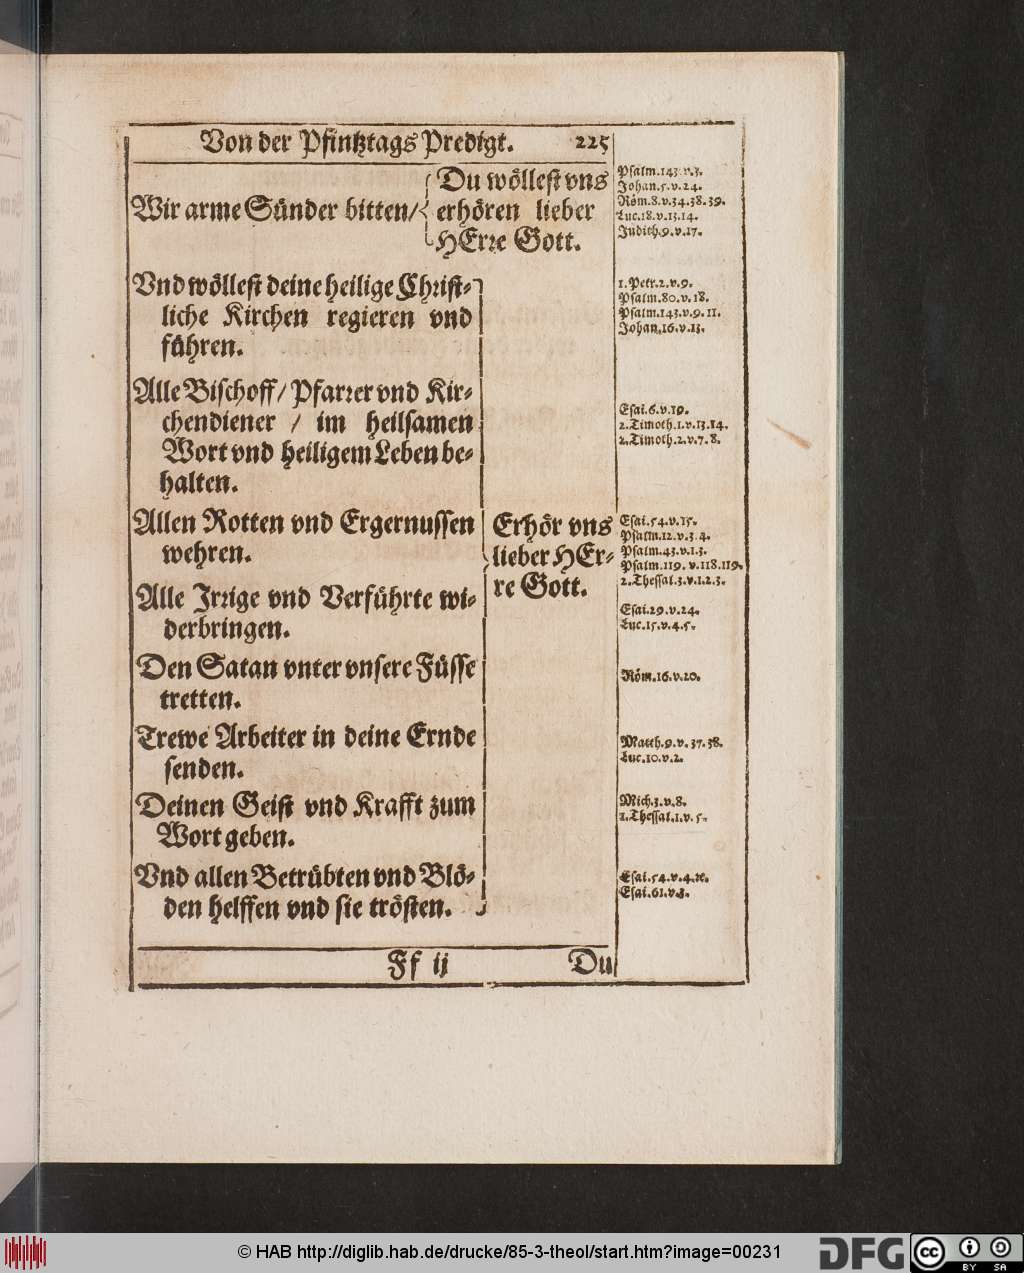 Von der Pfintztags Predigt. 225
Wir arme Sünder bitten/
Du wöllest vns
erhören lieber
HErre Gott.
Psalm.143.v.3.
Johan.5.v.24.
Röm.8.v.34.38.39.
Luc.18.v.13.14.
Judith.9.v.17.
Vnd wöllest deine heilige Christ-
liche Kirchen regieren vnd
führen.
1.Petr.2.v.9.
Psalm.80.v.18.
Psalm.143.v.9.11.
Johan.16.v.13.
Alle Bischoff/ Pfarrer vnd Kir-
chendiener / im heilsamen
Wort vnd heiligem Leben be-
halten.
Esai.6.v.19.
2.Timoth.1.v.13.14.
2.Timoth.2.v.7.8.
Allen Rotten vnd Ergernussen
wehren.
Erhör vns
lieber HEr-
re Gott.
Esai.54.v.15.
Psalm.12.v.3.4.
Psalm.43.v.1.3.
Psalm.119.v.118.119.
2.Thessal.3.v.1.2.3.
Alle Irrige vnd Verführte wi-
derbringen.
Esai.29.v.24.
Luc.15.v.4.5.
Den Satan vnter vnsere Füsse
tretten.
Röm.16.v.20.
Trewe Arbeiter in deine Ernde
senden.
Matth.9.v.37.38.
Luc.10.v.2.
Deinen Geist vnd Krafft zum
Wort geben.
Mich.3.v.8.
1.Thessal.1.v.5.
Vnd allen Betrübten vnd Blö-
den helffen vnd sie trösten.
Esai.54.v.4.
Esai.61.v.
Ff ij Du
© HAB http://diglib.hab.de/drucke/85-3-theol/start.htm?image=00231
DFG
cc
BY SA